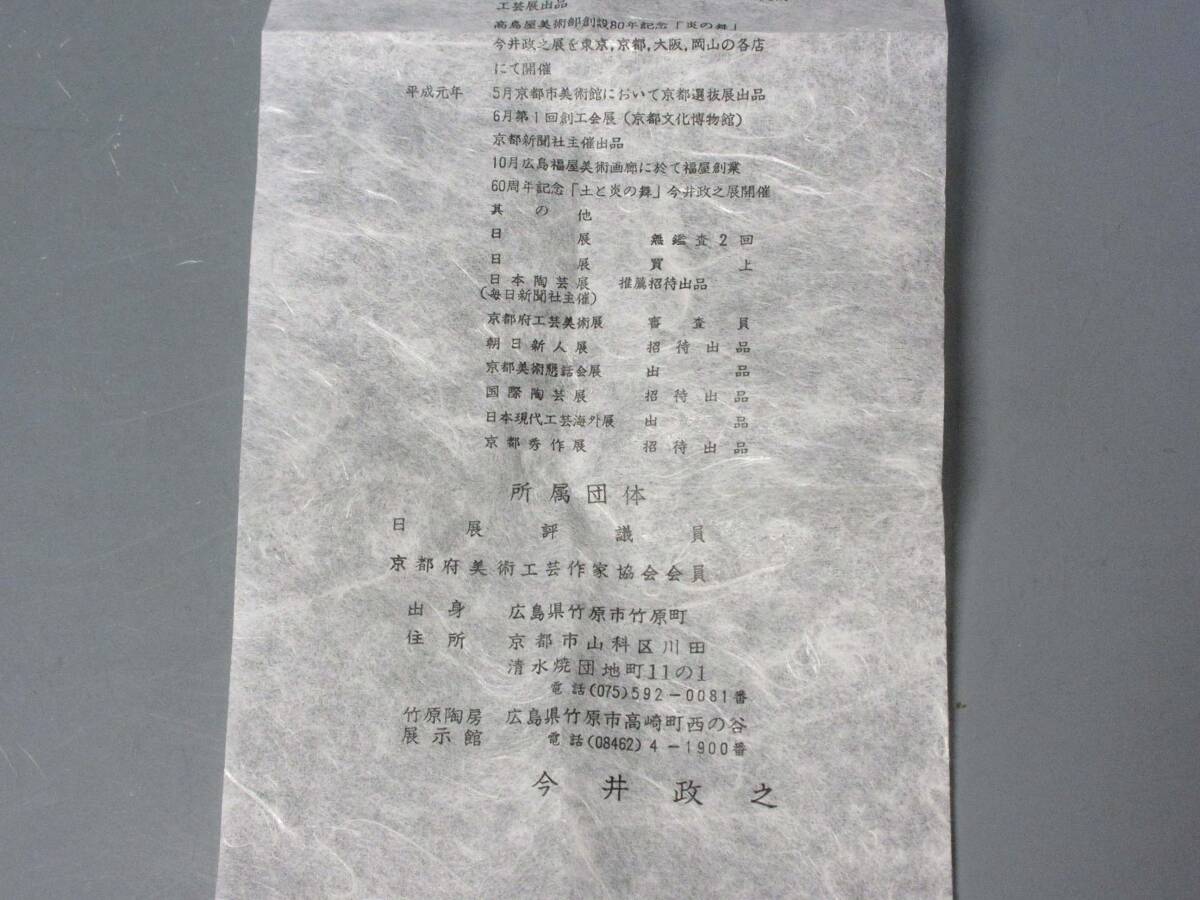 工芸展出品
高島屋美術部創設80年記念「炎の舞」
今井政之展を東京,京都,大阪,岡山の各店
にて開催
平成元年 5月京都市美術館において京都選抜展出品
6月第1回創工会展(京都文化博物館)
京都新聞社主催出品
10月広島福屋美術画廊に於て福屋創業
60周年記念「土と炎の舞」今井政之展開催
其の他
日展 無鑑査2回
日展 買上
日本陶芸展 推薦招待出品
(毎日新聞社主催)
京都府工芸美術展 審査員
朝日新人展 招待出品
京都美術懇話会展 出品
国際陶芸展 招待出品
日本現代工芸海外展 出品
京都秀作展 招待出品
所属団体
日展評議員
京都府美術工芸作家協会会員
出身 広島県竹原市竹原町
住所 京都市山科区川田
清水焼団地町11の1
電話(075)592-0081番
竹原陶房 広島県竹原市高崎町西の谷
展示館 電話(08462)4-1900番
今井政之